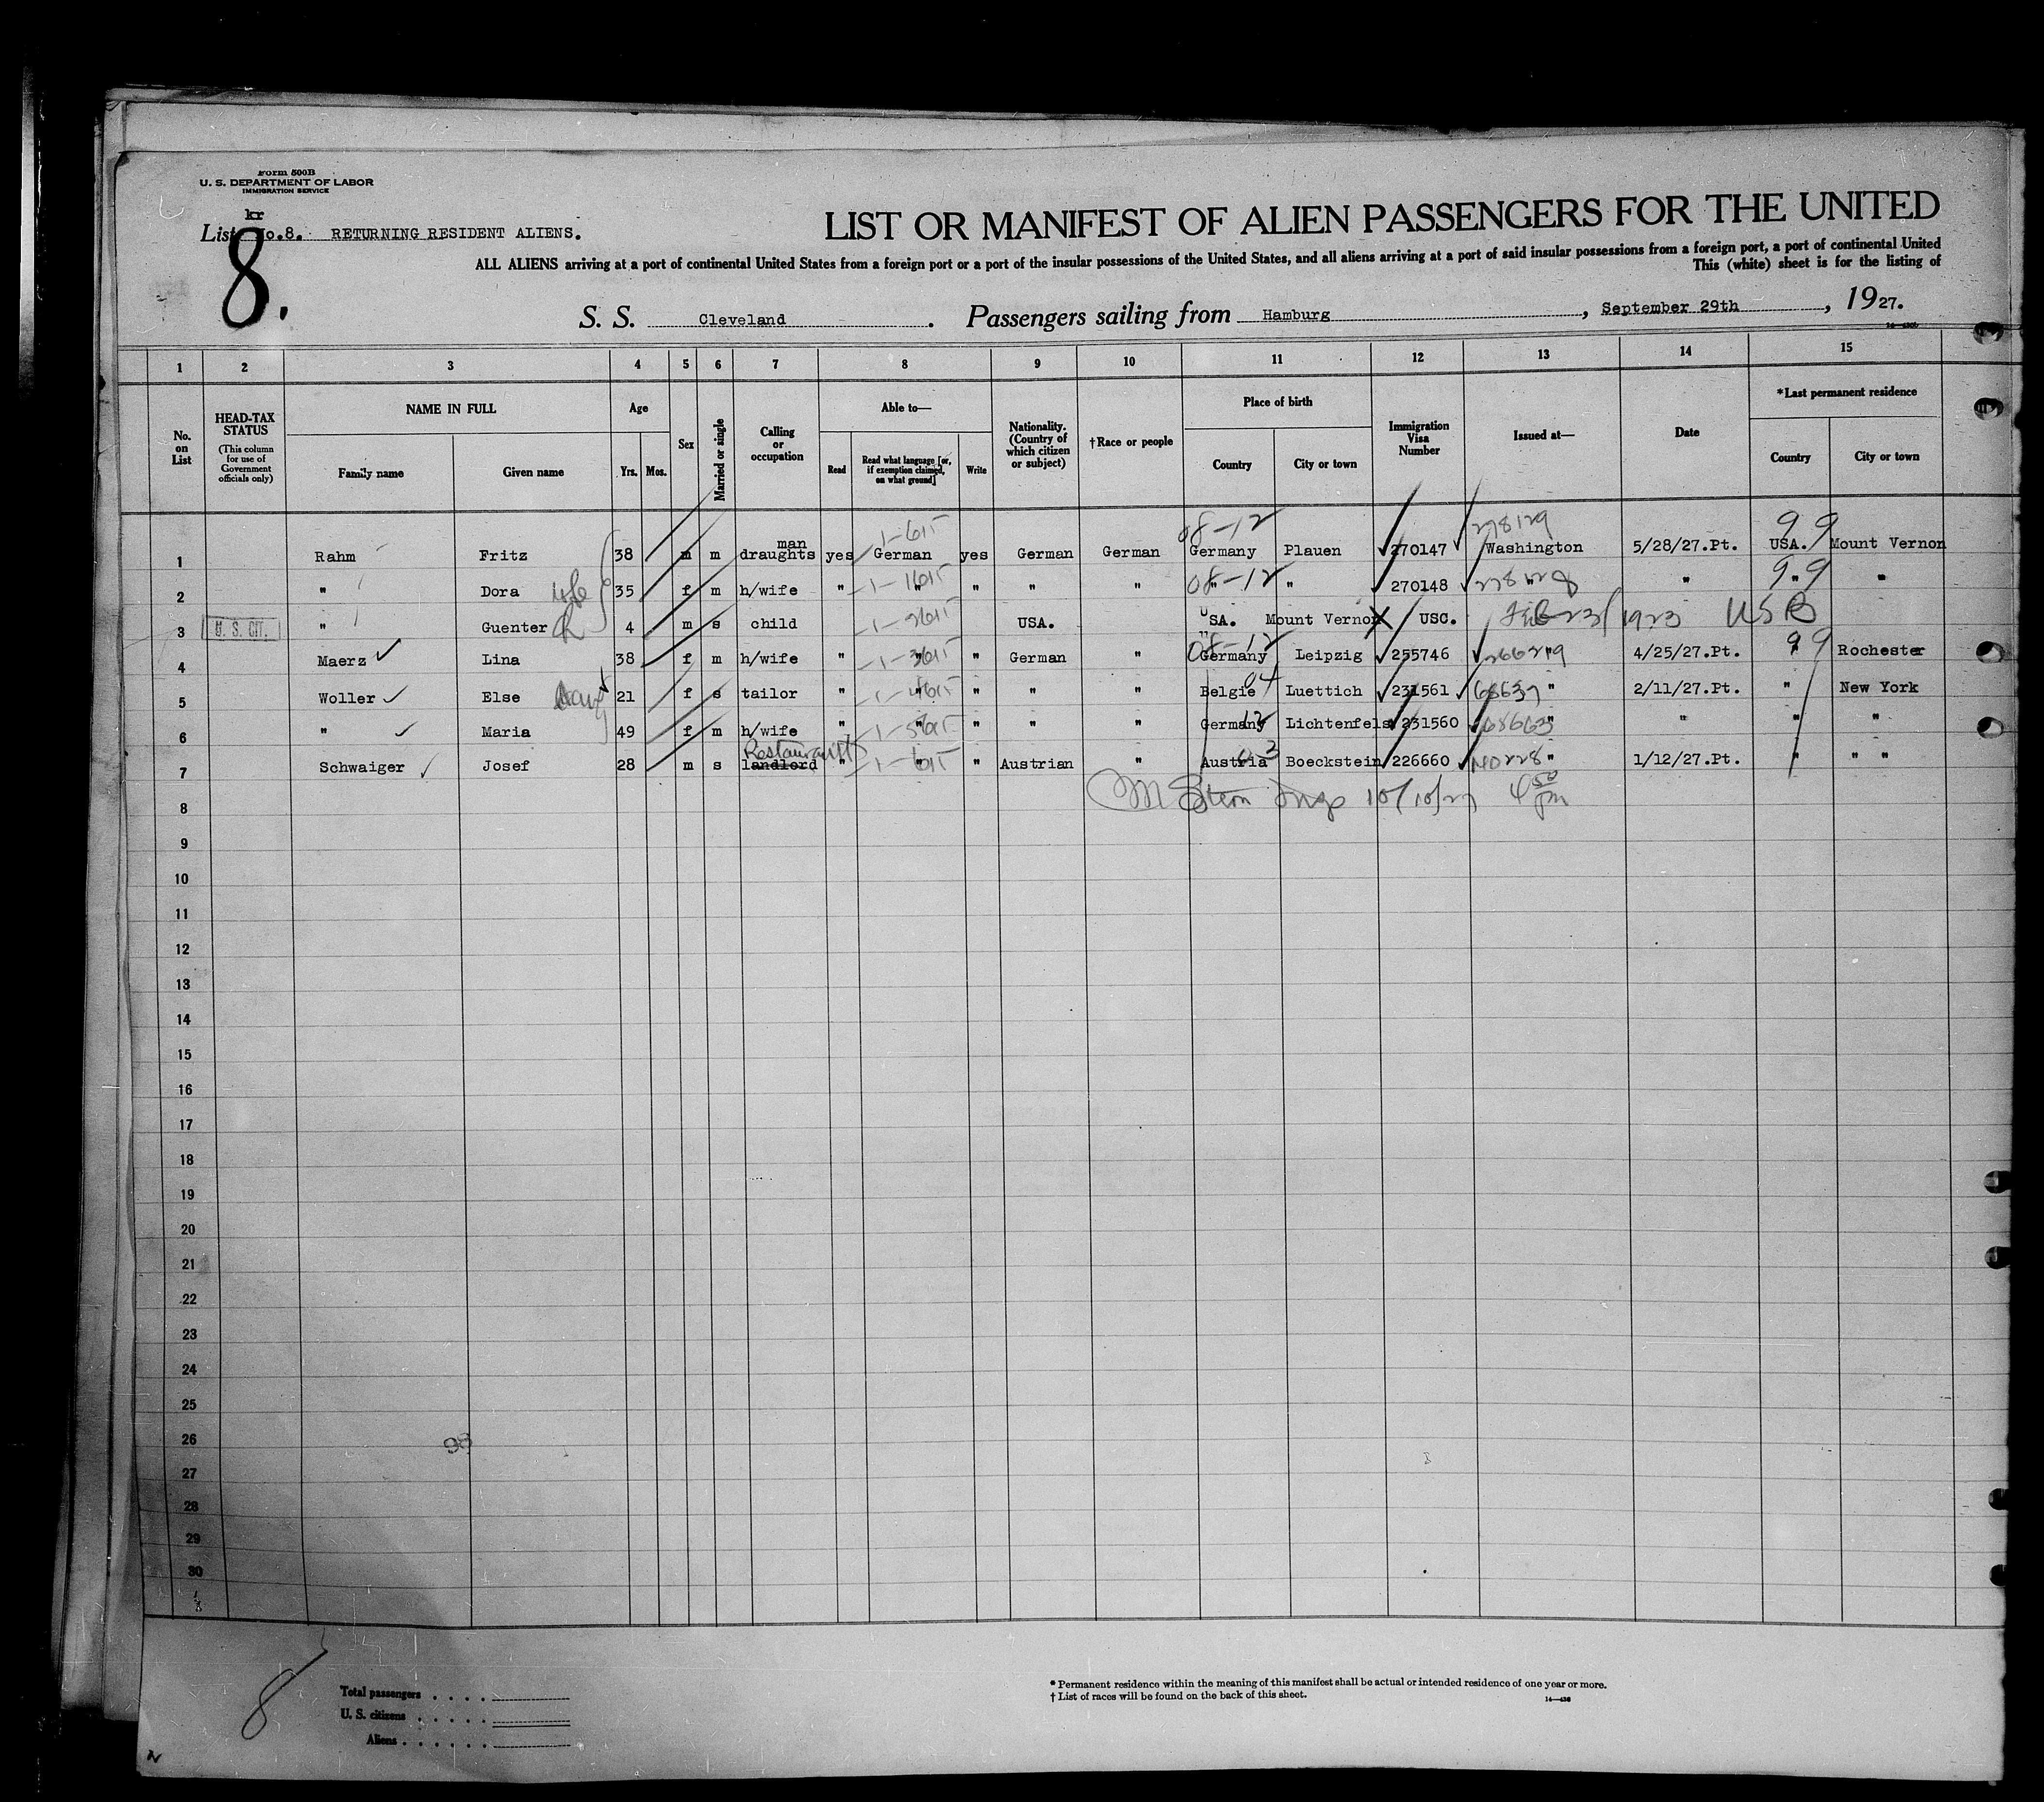 Form 500B
U. S. DEPARTMENT OF LABOR
IMMIGRATION SERVICE
kr
List No.8. RETURNING RESIDENT ALIENS.
8.
LIST OR MANIFEST OF ALIEN PASSENGERS FOR THE UNITED
ALL ALIENS arriving at a port of continental United States from a foreign port or a port of the insular possessions of the United States, and all aliens arriving at a port of said insular possessions from a foreign port, a port of continental United
This (white) sheet is for the listing of
S. S. Cleveland. Passengers sailing from Hamburg, September 29th, 1927.
1 2 3 4 5 6 7 8 9 10 11 12 13 14 15
No. on List
HEAD-TAX STATUS
(This column for use of Government officials only)
NAME IN FULL
Family name Given name
Age
Yrs. Mos.
Sex
Married or single
Calling or occupation
Able to—
Read
Read what language [or, if exemption claimed, on what ground]
Write
Nationality. (Country of which citizen or subject)
†Race or people
Place of birth
Country City or town
Immigration Visa Number
Issued at—
Date
*Last permanent residence
Country City or town
08-12 278129 99
1 Rahm Fritz 38 m m draughtsman yes German yes German German Germany Plauen 270147 Washington 5/28/27.Pt. USA. Mount Vernon
1-615
2 " Dora wife 35 f m h/wife " " " " " " " 270148 " " " "
1-1615 08-12 99
3 U. S. CIT. " Guenter 4 m s child USA. " USA. Mount Vernon USC. Feb 23/1923 US B
1-2615
4 Maerz Lina 38 f m h/wife " " " German " Germany Leipzig 255746 " 4/25/27.Pt. " Rochester
1-3615 08-12 99
5 Woller Else 21 f s tailor " " " " " Belgie Luettich 231561 " 2/11/27.Pt. " New York
1-4615 04
6 " Maria 49 f m h/wife " " " " " Germany Lichtenfels 231560 " " " "
1-5615 12
7 Schwaiger Josef 28 m s landlord " " " Austrian " Austria Boeckstein 226660 " 1/12/27.Pt. " " "
1-615 03
M Stern Insp 10/10/27 4 50 pm
8
9
10
11
12
13
14
15
16
17
18
19
20
21
22
23
24
25
26
98
27
28
29
30
8
Total passengers
U. S. citizens
Aliens
* Permanent residence within the meaning of this manifest shall be actual or intended residence of one year or more.
† List of races will be found on the back of this sheet.